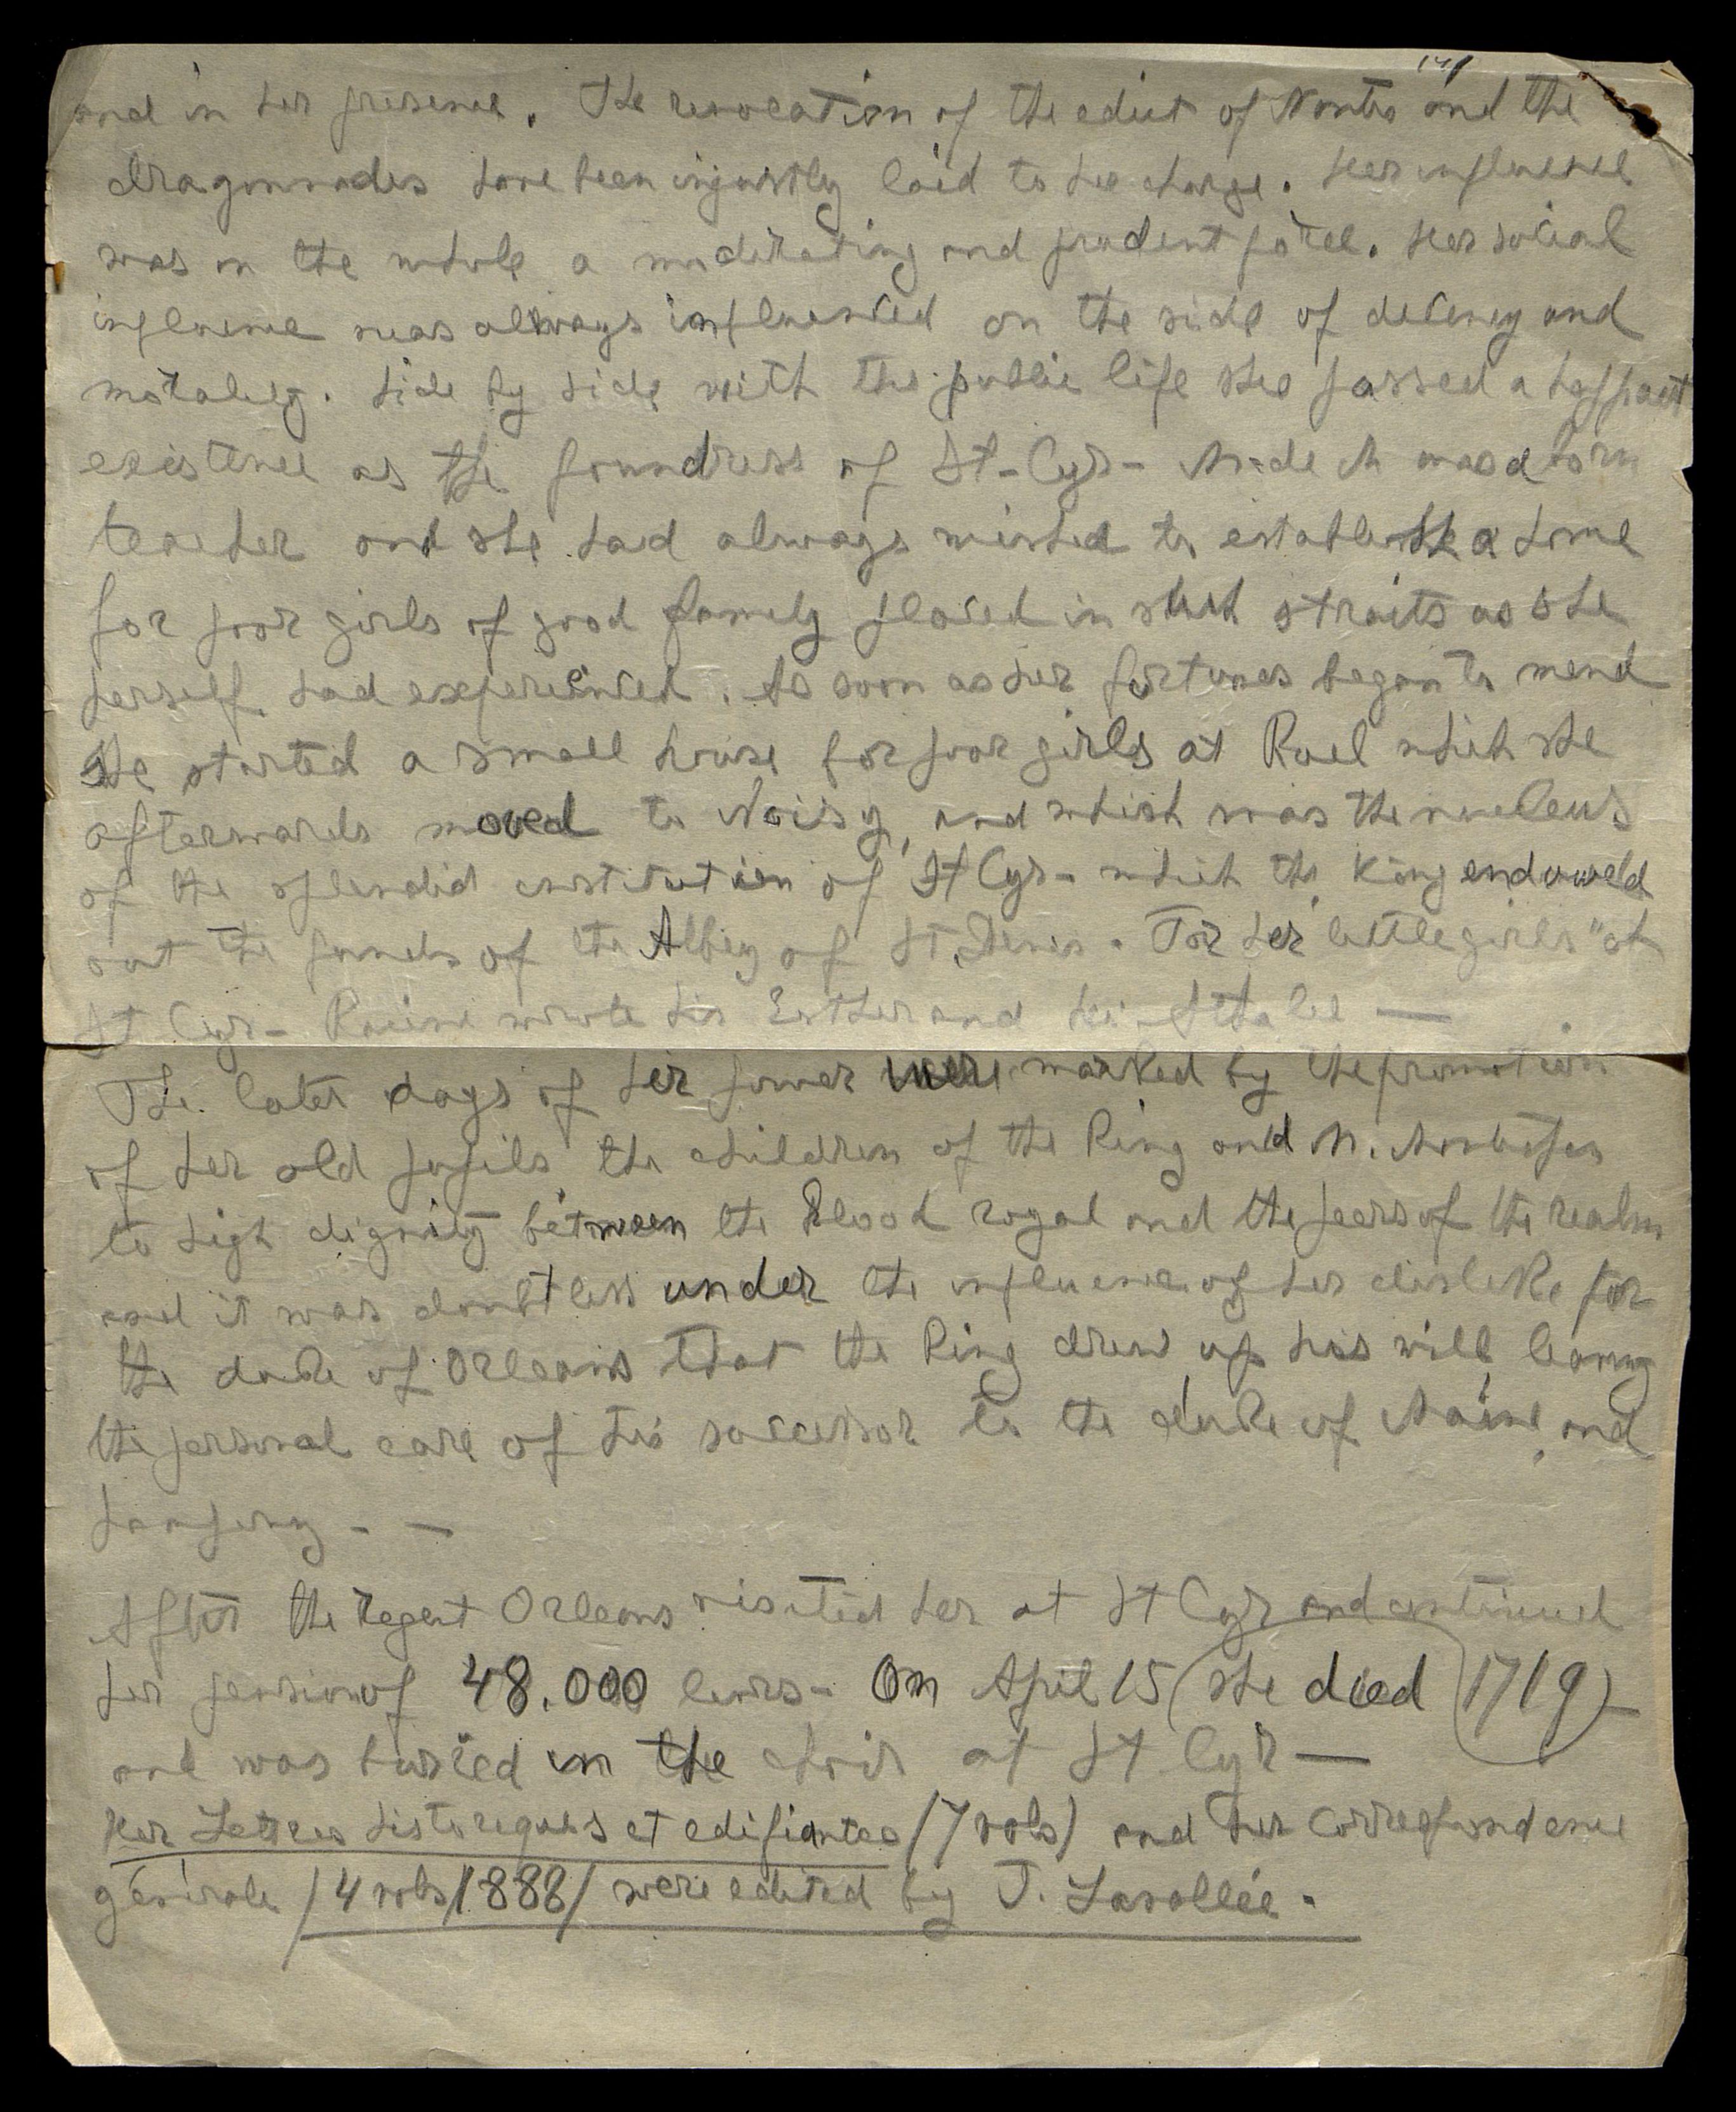 and in her presence. The revocation of the edict of Nantes and the
dragonnades have been injustly laid to her charge. Her influence
was on the whole a moderating and prudent force. Her social
influence was always influenced on the side of decency and
morality. Side by side with the public life she passed a happiest
existence as the foundress of St-Cyr- M-de M was a born
teacher and she had always wished to establish a home
for poor girls of good family placed in such straits as she
herself had experienced. As soon as her fortunes began to mend
she started a small house for poor girls at Ruel which she
afterwards moved to Noisy, and which was the nucleus
of the splendid institution of St Cyr- which the King endowed
out the funds of the Abbey of St Denis. For her "little girls" at
St Cyr- Racine wrote his Esther and his Athalie —
The later days of her power were marked by the promotion
of her old pupils the children of the King and M. Montespan
to high dignity between the blood royal and the peers of the realm
and it was doubtless under the influence of her dislike for
the duke of Orleans that the King drew up his will, leaving
the personal care of his successor to the duke of Maine, and
- —
After the regent Orleans visited her at St Cyr and continued
her pension of 48.000 livres- On April 15 she died (1719)-
and was buried in the choir at St Cyr —
Her Lettres historiques et edifiantes (7 vols) and her Correspondence
générale (4 vols/1888/ were edited by T. Lavallée.